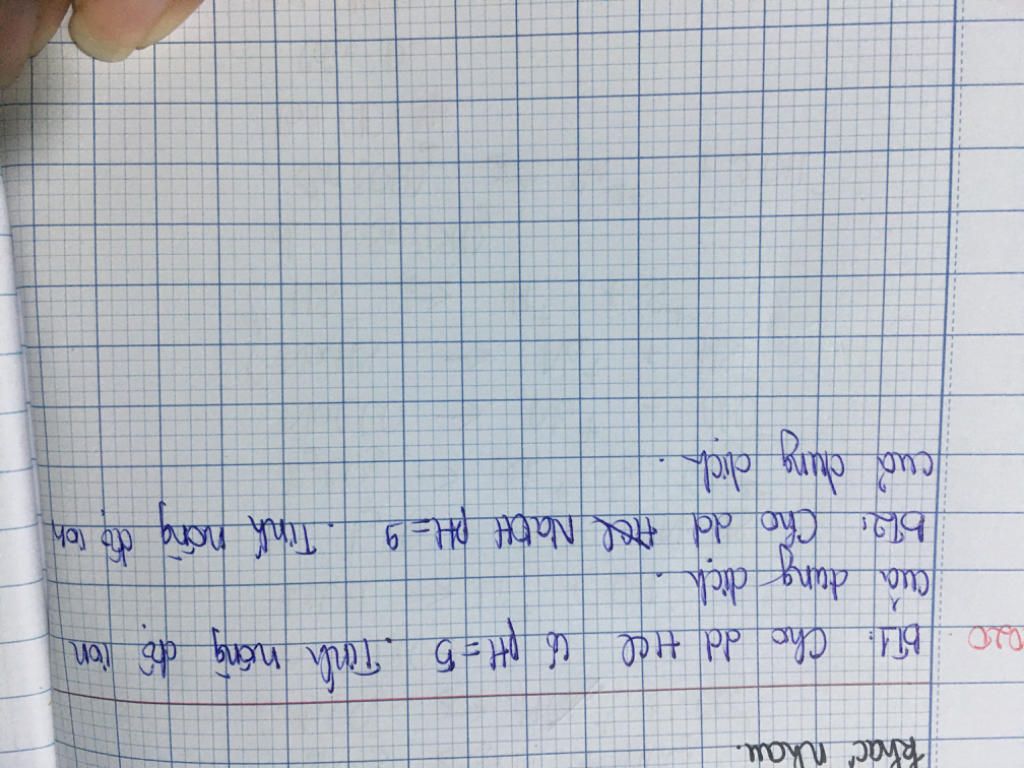 khác nhau.
020
BT1: Cho dd HCl có pH = 5. Tính nồng độ ion
của dung dịch.
BT2: Cho dd HCl NaOH pH = 9. Tính nồng độ ion
của dung dịch.